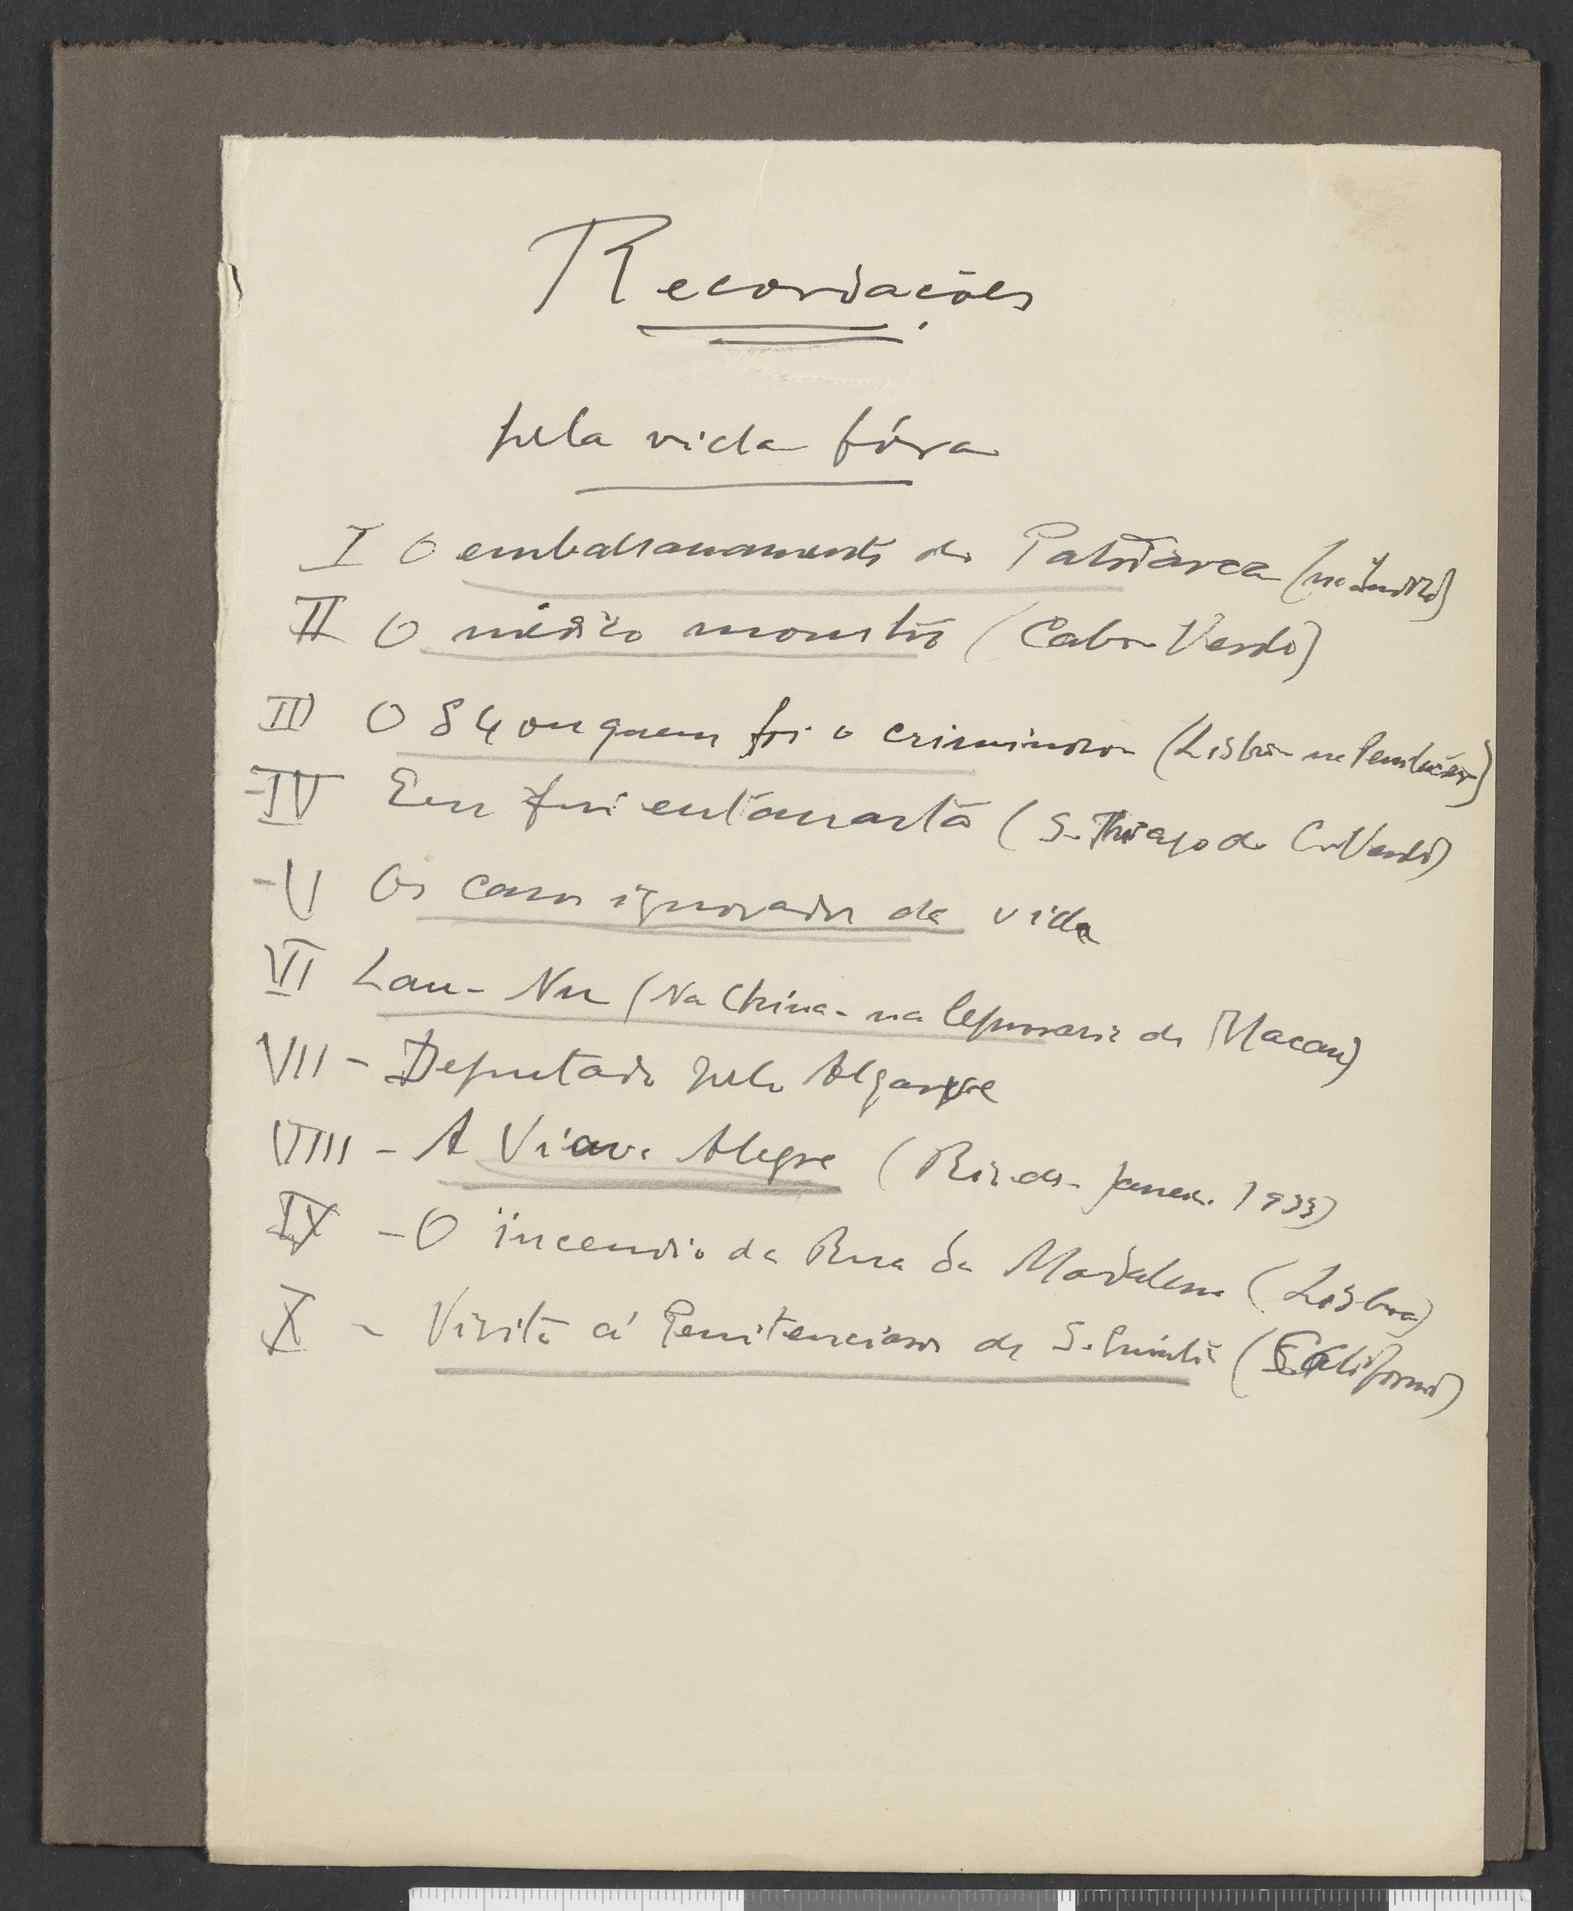 Recordações
pela vida fóra
I O embalsamamento do Patriarca (na India)
II O médico monstro (Cabo Verde)
III O 84 ou quem foi o criminoso (Lisboa na
IV Eu fui (S. Thiago de C. Verde)
-V Os casos ignorados da vida
VI Lau-Nu (Na China - na leprosaria de Macau)
VII - Deputado pelo Algarve
VIII - A Viuva Alegre (Rio de Janeiro 1933)
IX - O incendio da Rua da Madalena (Lisboa)
X - Visita á Penitenciaria de S. Quintin (California)